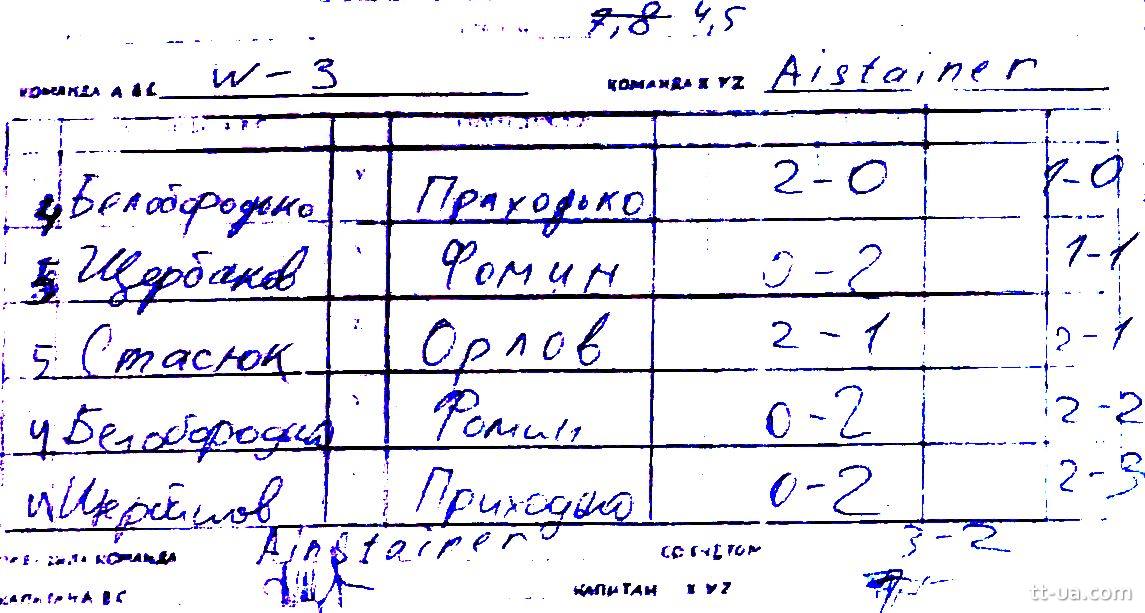 7,8 4,5
КОМАНДА А ВС W-3 КОМАНДА X YZ Aistainer
4 Белобородько Праходько 2-0 1-0
5 Щербаков Фомин 0-2 1-1
5 Стасюк Орлов 2-1 2-1
4 Фомин 0-2 2-2
4 Приходько 0-2 2-3
КОМАНДА Ainstainer СО СЧЕТОМ 3-2
КАПИТАН X YZ
tt-ua.com